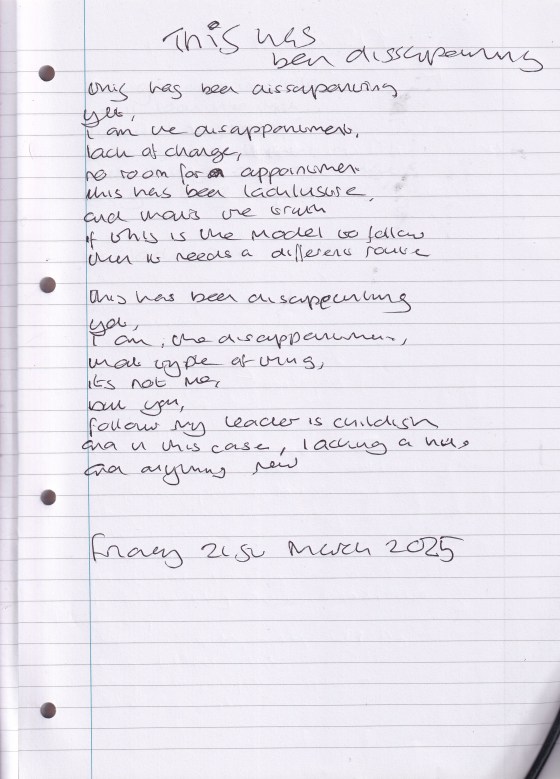 This has
been dissapointing
this has been dissapointing
yet,
I am the disappointment,
lack of change,
no room for appointment
this has been lacklusture,
and that's the truth
if this is the model to follow
then it needs a different route
this has been disappointing
yet,
I am, the disappointment,
that type of thing,
its not me,
but you,
follow my leader is childish
and in this case, lacking a
and anything new
Friday 21st March 2025